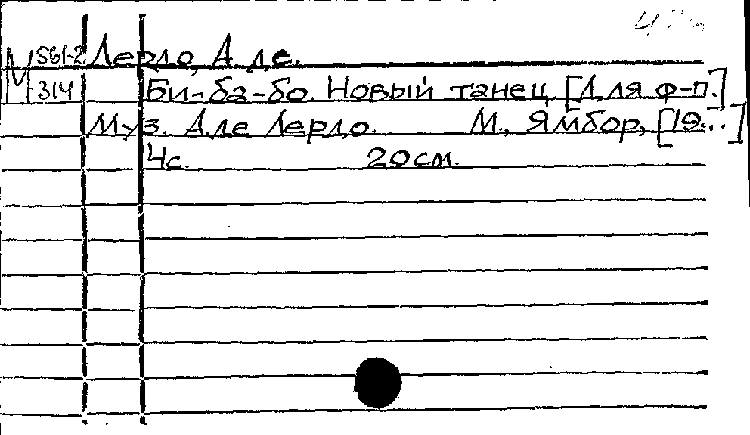 М 561-2 Лердо, А. де.
314 Би-ба-бо. Новый танец [Для ф-п.]
Муз. А де Лердо. М., Ямбор, [19..]
4с. 20см.